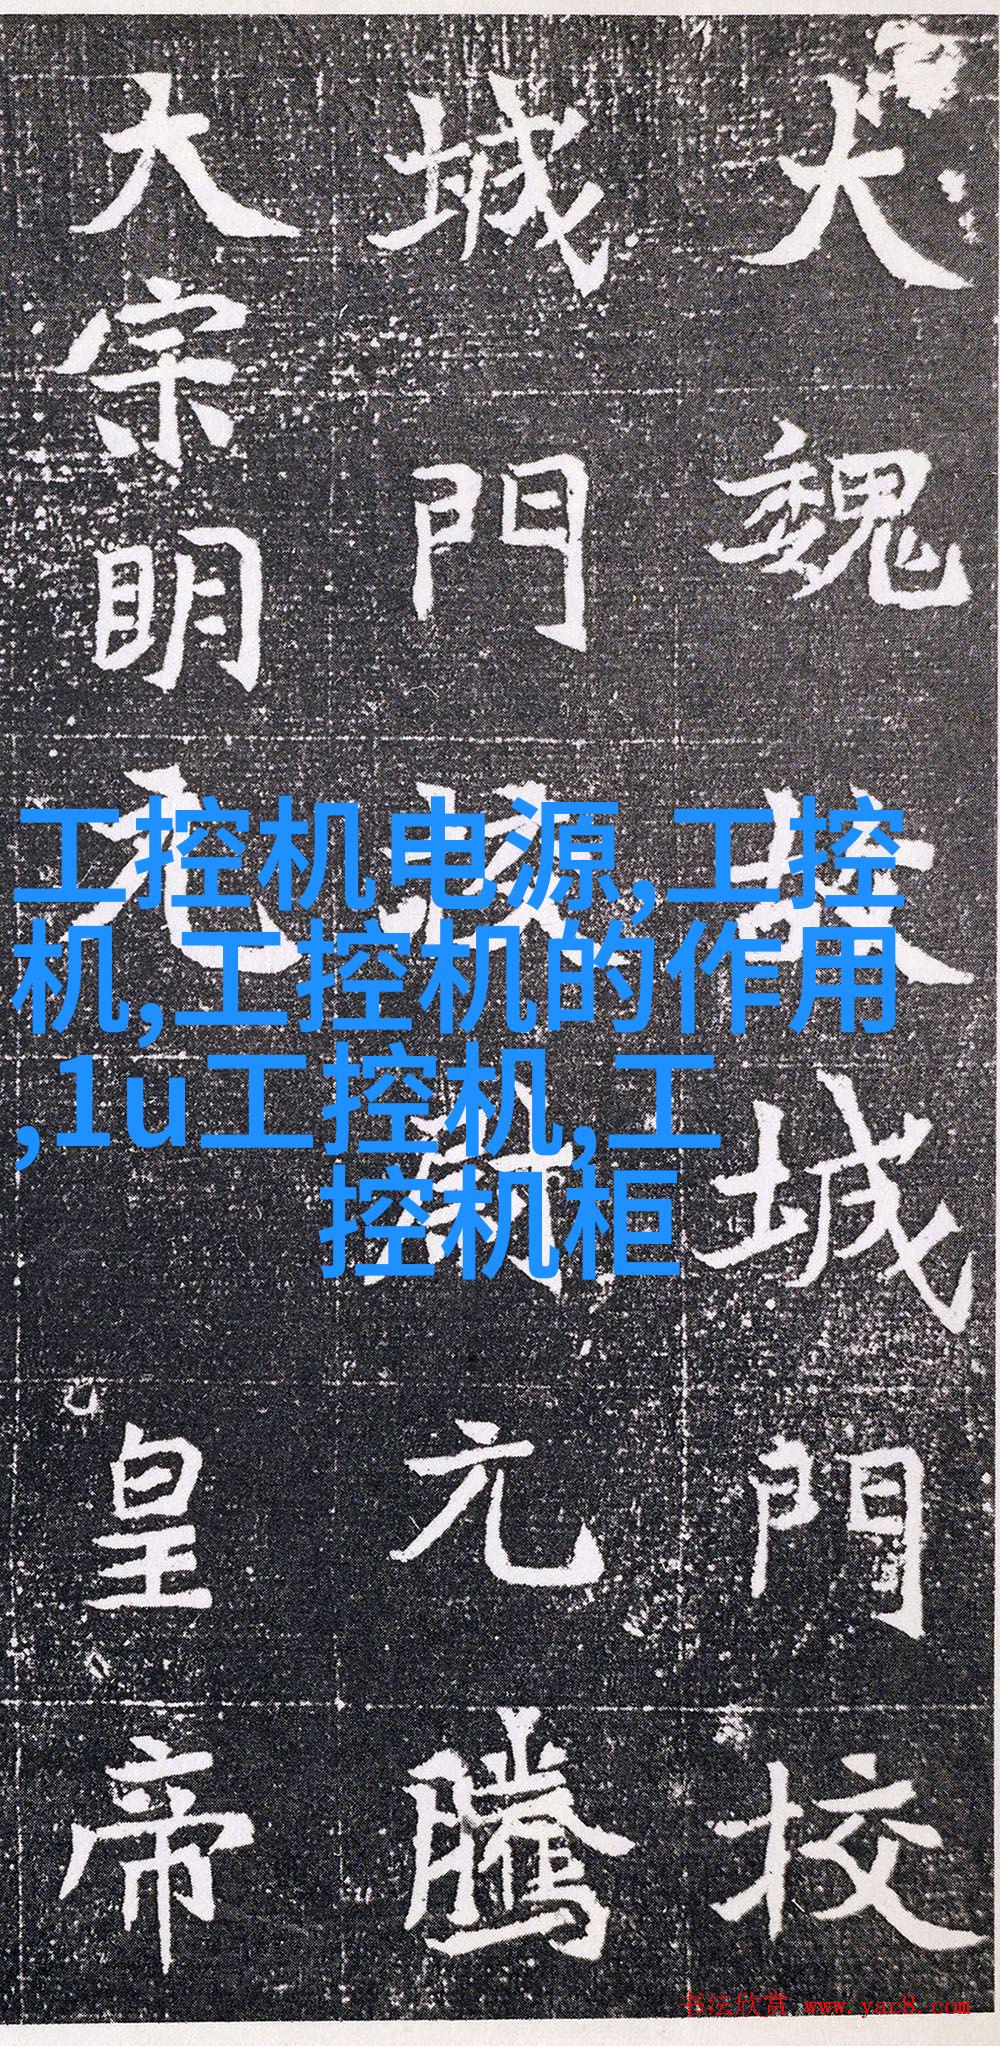 大魏故城門校
城門校尉元騰
大宗明元皇帝
工控机电源,工控
机,工控机的作用
,1u工控机,工
控机柜
书法欣赏 www.yac8.com